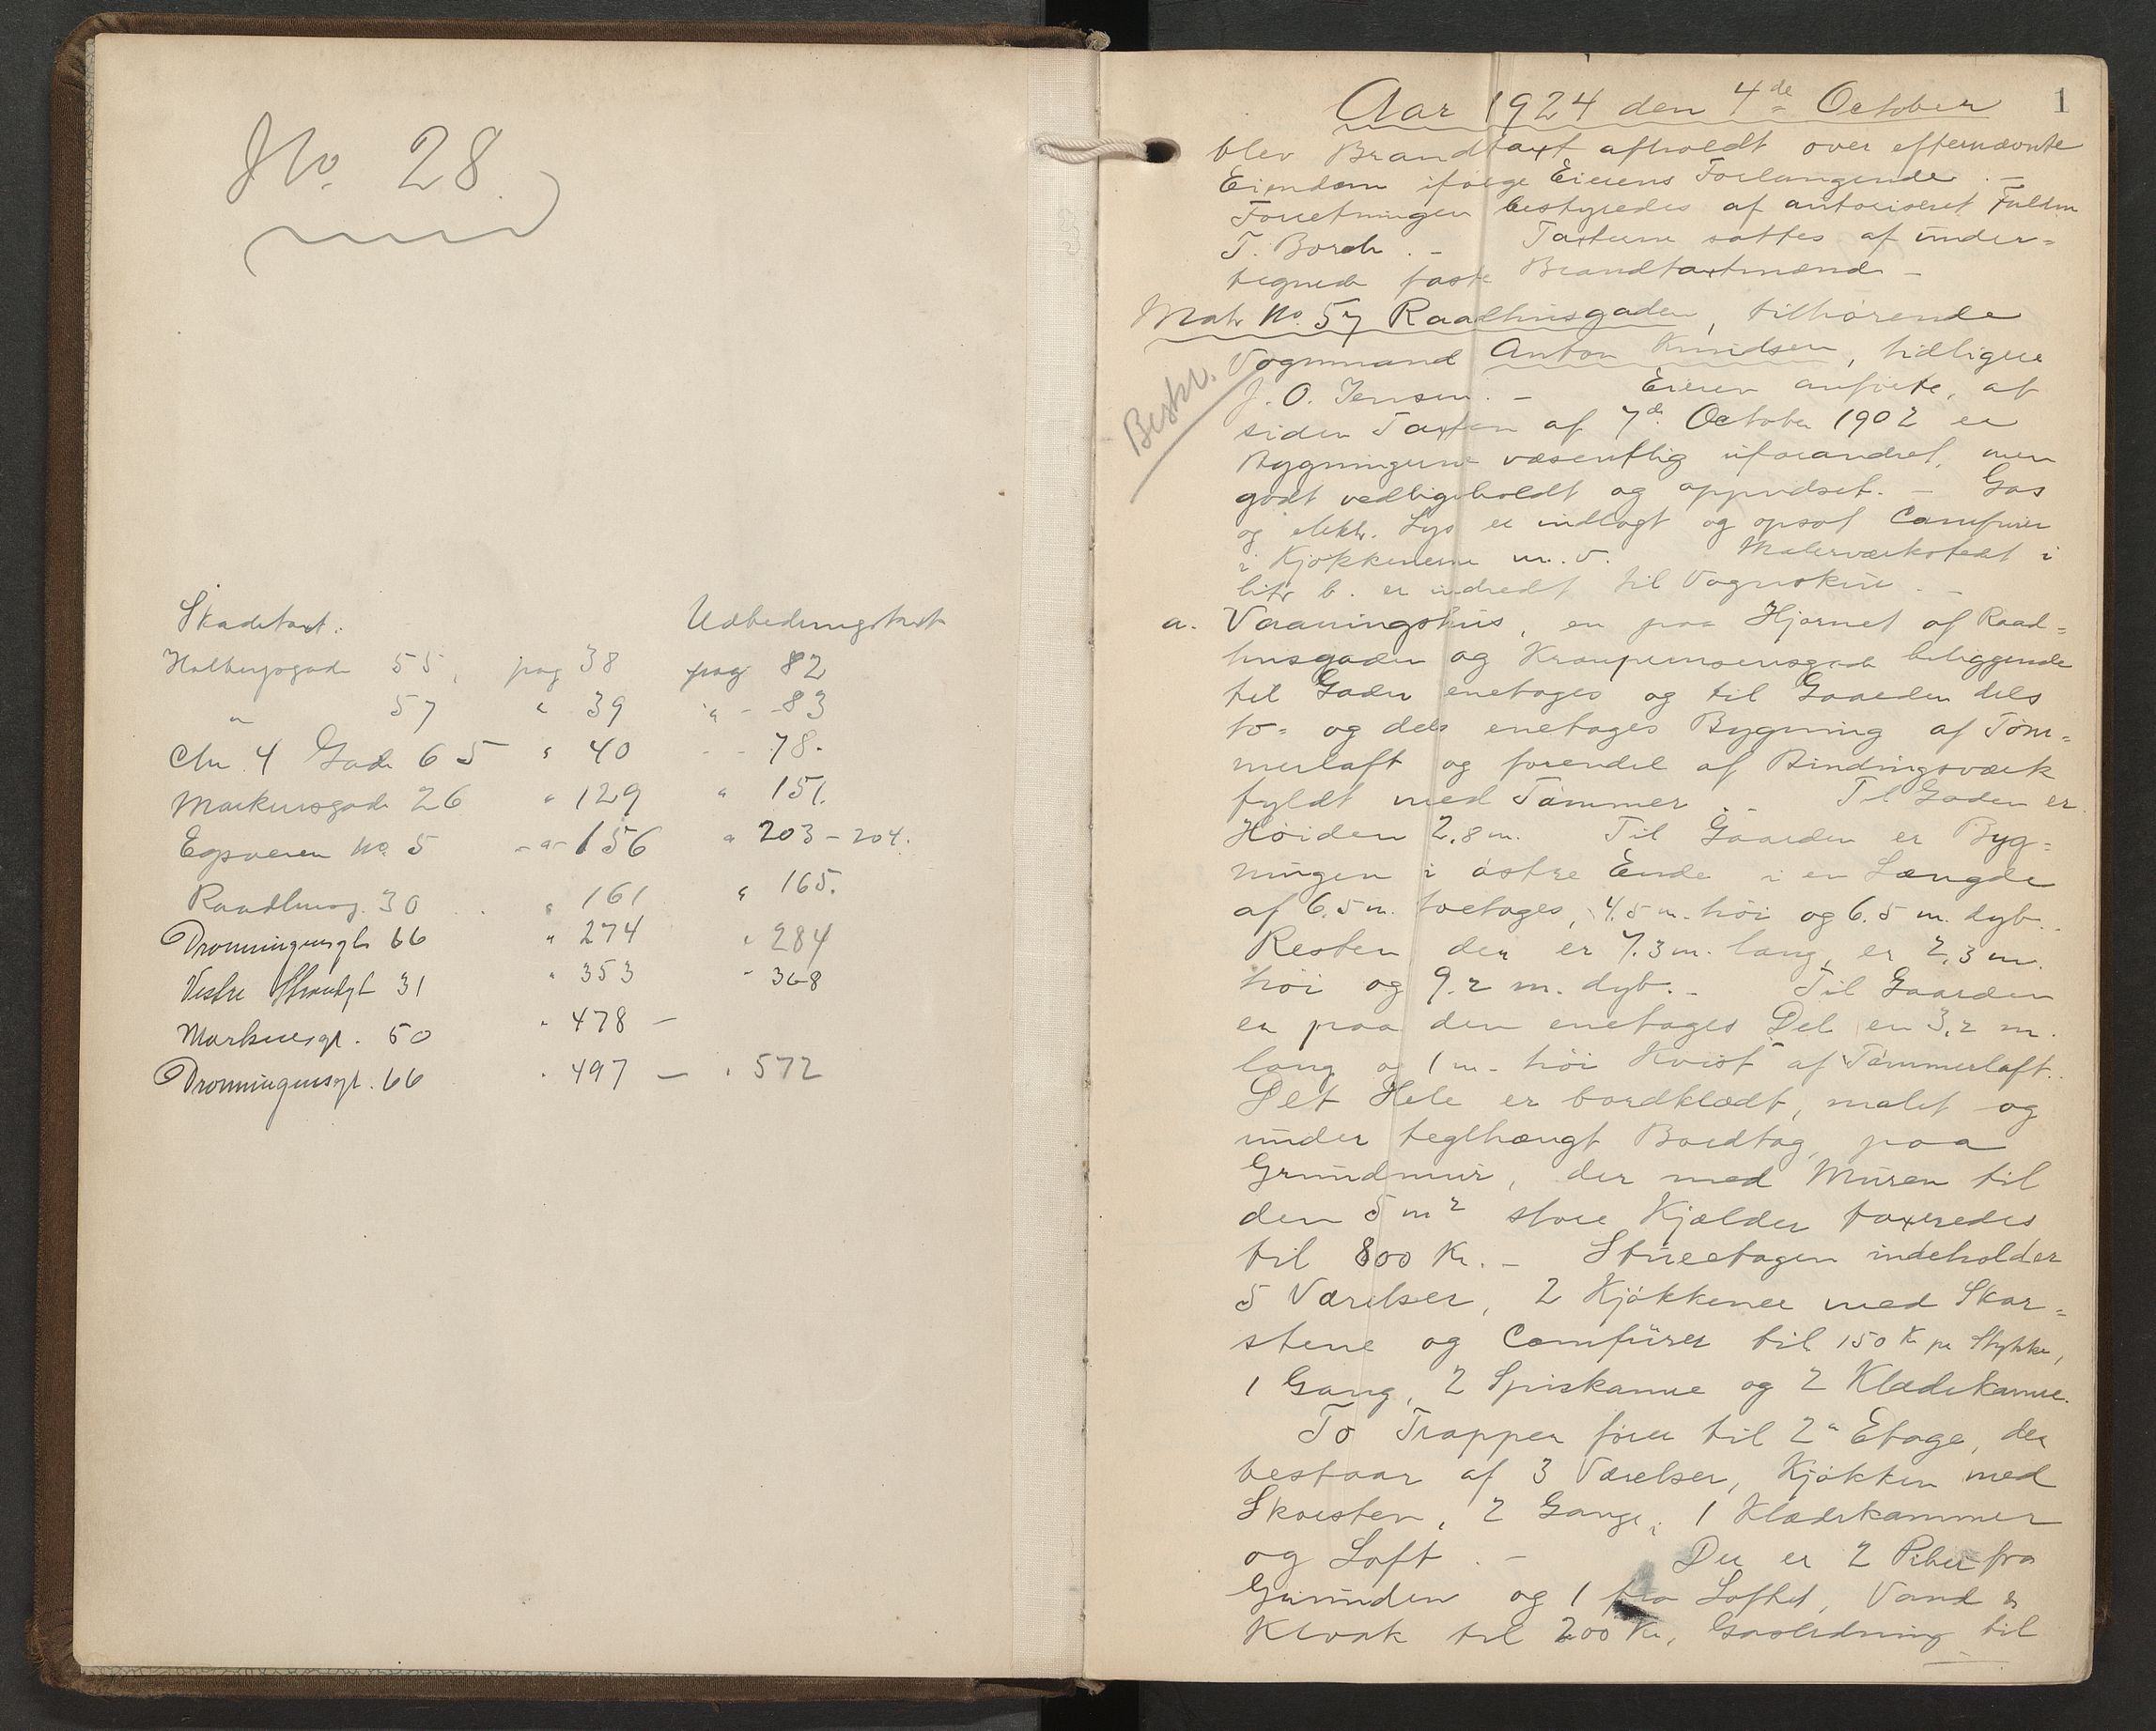 No. 28
Skadetaxt. Udbedringstaxt
Holbergsgade 55, pag 38 pag 82
" 57 " 39 " - 83
Chr. 4 Gade 65 " 40 - - 78.
Markensgade 26 " 129 " 151.
Egsveien No. 5 - " - 156 " 203 - 204.
Raadhusg. 30 . . " 161 " 165.
Dronningensgt. 66 " 274 " 284
Vestre Strandgt 31 " 353 " 368
Markensgt. 50 " 478 -
Dronningensgt. 66 " 497 - " 572
1
Aar 1924 den 4de October
blev Brandtaxt afholdt over efternævnte
Eiendom ifølge Eierens Forlangende. -
Forretningen bestyredes af autoriseret Fuldm
T. Borch. - Taxterne sattes af under=
tegnede faste Brandtaxtmænd -
Matr No. 57 Raadhusgaden, tilhørende
Vognmand Anton Knudsen, tidligere
J. O. Jensen. - Eieren anførte, at
Beskr.
siden Taxten af 7de October 1902 er
Bygningerne væsentlig uforandret, men
godt vedligeholdt og oppudset. - Gas
og elektr. Lys er indlagt og opsat Comfurer
i Kjøkkenerne m. v. Malerværkstedet i
litr b. er indredt til Vognskur. -
a. Vaaningshus, en paa Hjørnet af Raad=
husgaden og Kronprinsensgade beliggende
til Gaden enetages og til Gaarden dels
to- og dels enetages Bygning af Tøm=
merlaft og forendel af Bindingsværk
fyldt med Tømmer. - Til Gaden er
Høiden 2,8 m. Til Gaarden er Byg=
ningen i østre Ende i en Længde
af 6,5 m. toetages, 4,5 m. høi og 6,5 m. dyb.
Resten der er 7,3 m. lang, er 2,3 m.
høi og 9,2 m. dyb. - Til Gaarden
er paa den enetages Del en 3,2 m.
lang og 1 m. høi Kvist af Tømmerlaft.
Det Hele er bordklædt, malet og
under teglhængt Bordtag, paa
Grundmur, der med Muren til
den 5 m2 store Kjælder taxeredes
til 800 Kr. - Stueetagen indeholder
5 Værelser, 2 Kjøkkener med Skor=
stene og Comfurer til 150 Kr pr Stykke,
1 Gang, 2 Spiskamre og 2 Klædekamre.
To Trapper fører til 2n Etage, der
bestaar af 3 Værelser, Kjøkken med
Skorsten, 2 Gange, 1 Klædekammer
og Loft. - Der er 2 Piber fra
Grunden og 1 fra Loftet, Vand &
Kloak til 200 Kr, Gasledning til